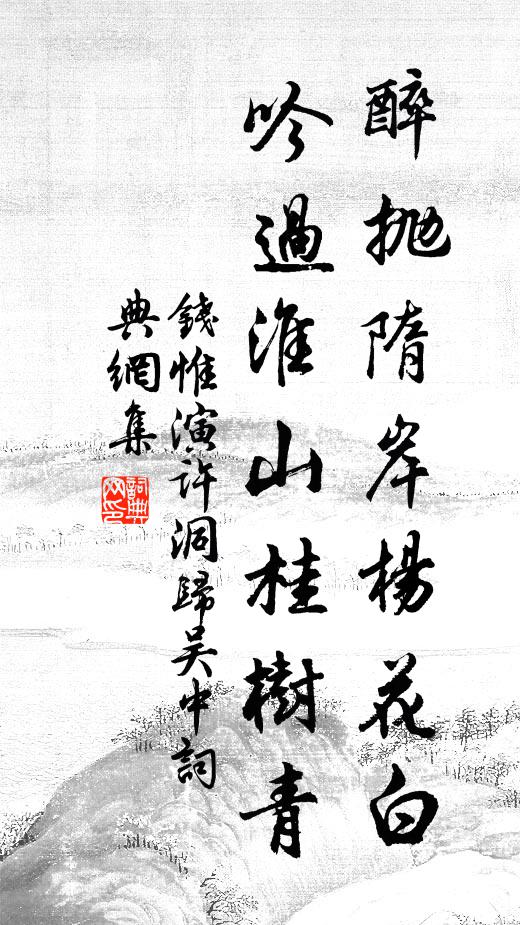 醉抛隋岸楊花白
吟過淮山桂樹青
錢惟演許洞歸吳中詞
典網集
詞典網印